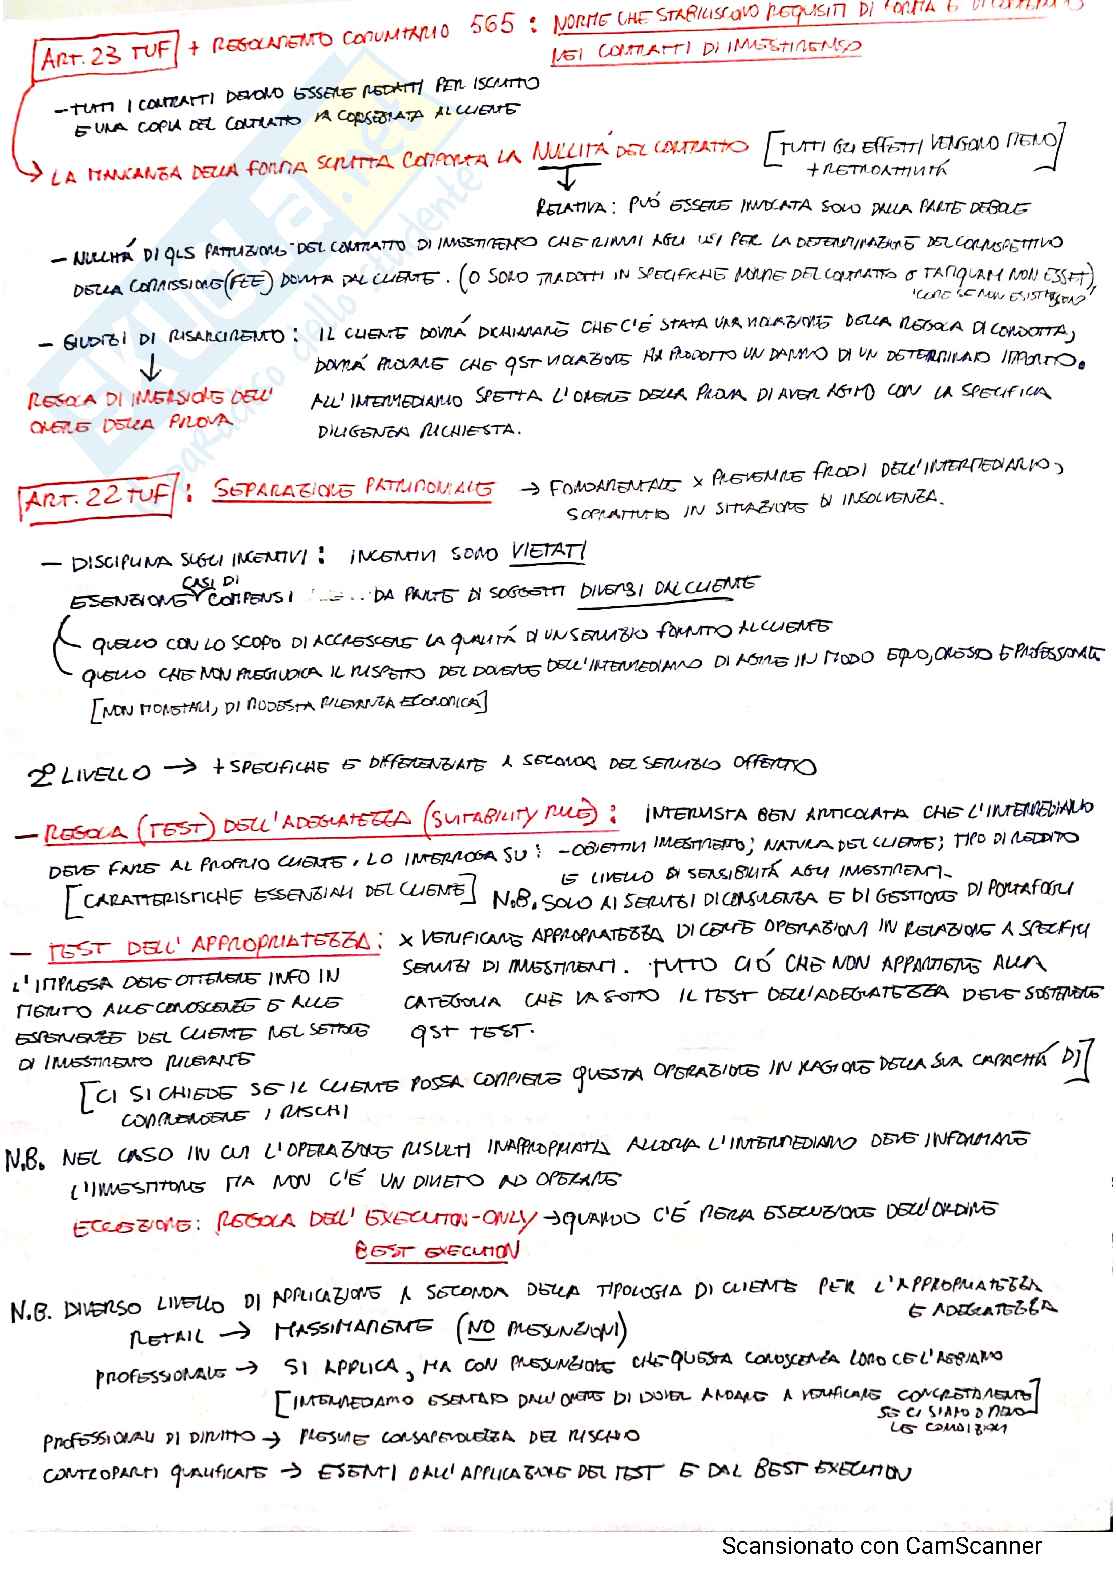 ART. 23 TUF + REGOLAMENTO COMUNITARIO 565 : NORME CHE STABILISCONO REQUISITI DI FORMA E DI
NEI CONTRATTI DI INVESTIMENTO
- TUTTI I CONTRATTI DEVONO ESSERE REDATTI PER ISCRITTO
E UNA COPIA DEL CONTRATTO VA CONSEGNATA AL CLIENTE
LA MANCANZA DELLA FORMA SCRITTA COMPORTA LA NULLITÁ DEL CONTRATTO [TUTTI GLI EFFETTI VENGONO MENO]
+ RETROATTIVITÁ
RELATIVA : PUÓ ESSERE INVOCATA SOLO DALLA PARTE DEBOLE
- NULLITÁ DI QLS PATTUIZIONE DEL CONTRATTO DI INVESTIMENTO CHE RINVII AGLI USI PER LA DETERMINAZIONE DEL CORRISPETTIVO
DELLA COMMISSIONE (FEE) DOVUTA DAL CLIENTE. (O SONO TRADOTTI IN SPECIFICHE NORME DEL CONTRATTO O TAMQUAM NON ESSET),
"COME SE NON ESISTESSERO"
- GIUDIZI DI RISARCIMENTO : IL CLIENTE DOVRÁ DICHIARARE CHE C'É STATA UNA VIOLAZIONE DELLA REGOLA DI CONDOTTA,
DOVRÁ PROVARE CHE QST VIOLAZIONE HA PRODOTTO UN DANNO DI UN DETERMINATO IMPORTO.
REGOLA DI INVERSIONE DELL' ALL'INTERMEDIARIO SPETTA L'ONERE DELLA PROVA DI AVER AGITO CON LA SPECIFICA
ONERE DELLA PROVA DILIGENZA RICHIESTA.
ART. 22 TUF : SEPARAZIONE PATRIMONIALE → FONDAMENTALE X PREVENIRE FRODI DELL'INTERMEDIARIO,
SOPRATTUTTO IN SITUAZIONE DI INSOLVENZA.
- DISCIPLINA SUGLI INCENTIVI : INCENTIVI SONO VIETATI
CASI DI
ESENZIONE COMPENSI ... DA PARTE DI SOGGETTI DIVERSI DAL CLIENTE
QUELLO CON LO SCOPO DI ACCRESCERE LA QUALITÁ DI UN SERVIZIO FORNITO AL CLIENTE
QUELLO CHE NON PREGIUDICA IL RISPETTO DEL DOVERE DELL'INTERMEDIARIO DI AGIRE IN MODO EQUO, ONESTO E PROFESSIONALE
[NON MONETARI, DI MODESTA RILEVANZA ECONOMICA]
2° LIVELLO → + SPECIFICHE E DIFFERENZIATE A SECONDA DEL SERVIZIO OFFERTO
- REGOLA (TEST) DELL'ADEGUATEZZA (SUITABILITY RULE) : INTERVISTA BEN ARTICOLATA CHE L'INTERMEDIARIO
DEVE FARE AL PROPRIO CLIENTE. LO INTERROGA SU : - OBIETTIVI INVESTIMENTO ; NATURA DEL CLIENTE ; TIPO DI REDDITO
E LIVELLO DI SENSIBILITÁ AGLI INVESTIMENTI.
[CARATTERISTICHE ESSENZIALI DEL CLIENTE] N.B. SOLO AI SERVIZI DI CONSULENZA E DI GESTIONE DI PORTAFOGLI
- TEST DELL'APPROPRIATEZZA : X VERIFICARE APPROPRIATEZZA DI CERTE OPERAZIONI IN RELAZIONE A SPECIFICI
L'IMPRESA DEVE OTTENERE INFO IN SERVIZI DI INVESTIMENTI. TUTTO CIÓ CHE NON APPARTIENE ALLA
MERITO ALLE CONOSCENZE E ALLE CATEGORIA CHE VA SOTTO IL TEST DELL'ADEGUATEZZA DEVE SOSTENERE
ESPERIENZE DEL CLIENTE NEL SETTORE QST TEST.
DI INVESTIMENTO RILEVANTE
[CI SI CHIEDE SE IL CLIENTE POSSA COMPIERE QUESTA OPERAZIONE IN RAGIONE DELLA SUA CAPACITÁ DI]
COMPRENDERE I RISCHI
N.B. NEL CASO IN CUI L'OPERAZIONE RISULTI INAPPROPRIATA ALLORA L'INTERMEDIARIO DEVE INFORMARE
L'INVESTITORE MA NON C'É UN DIVIETO AD OPERARE
ECCEZIONE : REGOLA DELL'EXECUTION-ONLY → QUANDO C'É MERA ESECUZIONE DELL'ORDINE
BEST EXECUTION
N.B. DIVERSO LIVELLO DI APPLICAZIONE A SECONDA DELLA TIPOLOGIA DI CLIENTE PER L'APPROPRIATEZZA
E ADEGUATEZZA
RETAIL → MASSIMAMENTE (NO PRESUNZIONI)
PROFESSIONALE → SI APPLICA, MA CON PRESUNZIONE CHE QUESTA CONOSCENZA LORO CE L'ABBIANO
[INTERMEDIARIO ESENTATO DALL'ONERE DI DOVER ANDARE A VERIFICARE CONCRETAMENTE]
SE CI SIANO O MENO
LE CONDIZIONI
PROFESSIONALI DI DIRITTO → PRESUME CONSAPEVOLEZZA DEL RISCHIO
CONTROPARTI QUALIFICATE → ESENTI DALL'APPLICAZIONE DEL TEST E DAL BEST EXECUTION
Scansionato con CamScanner